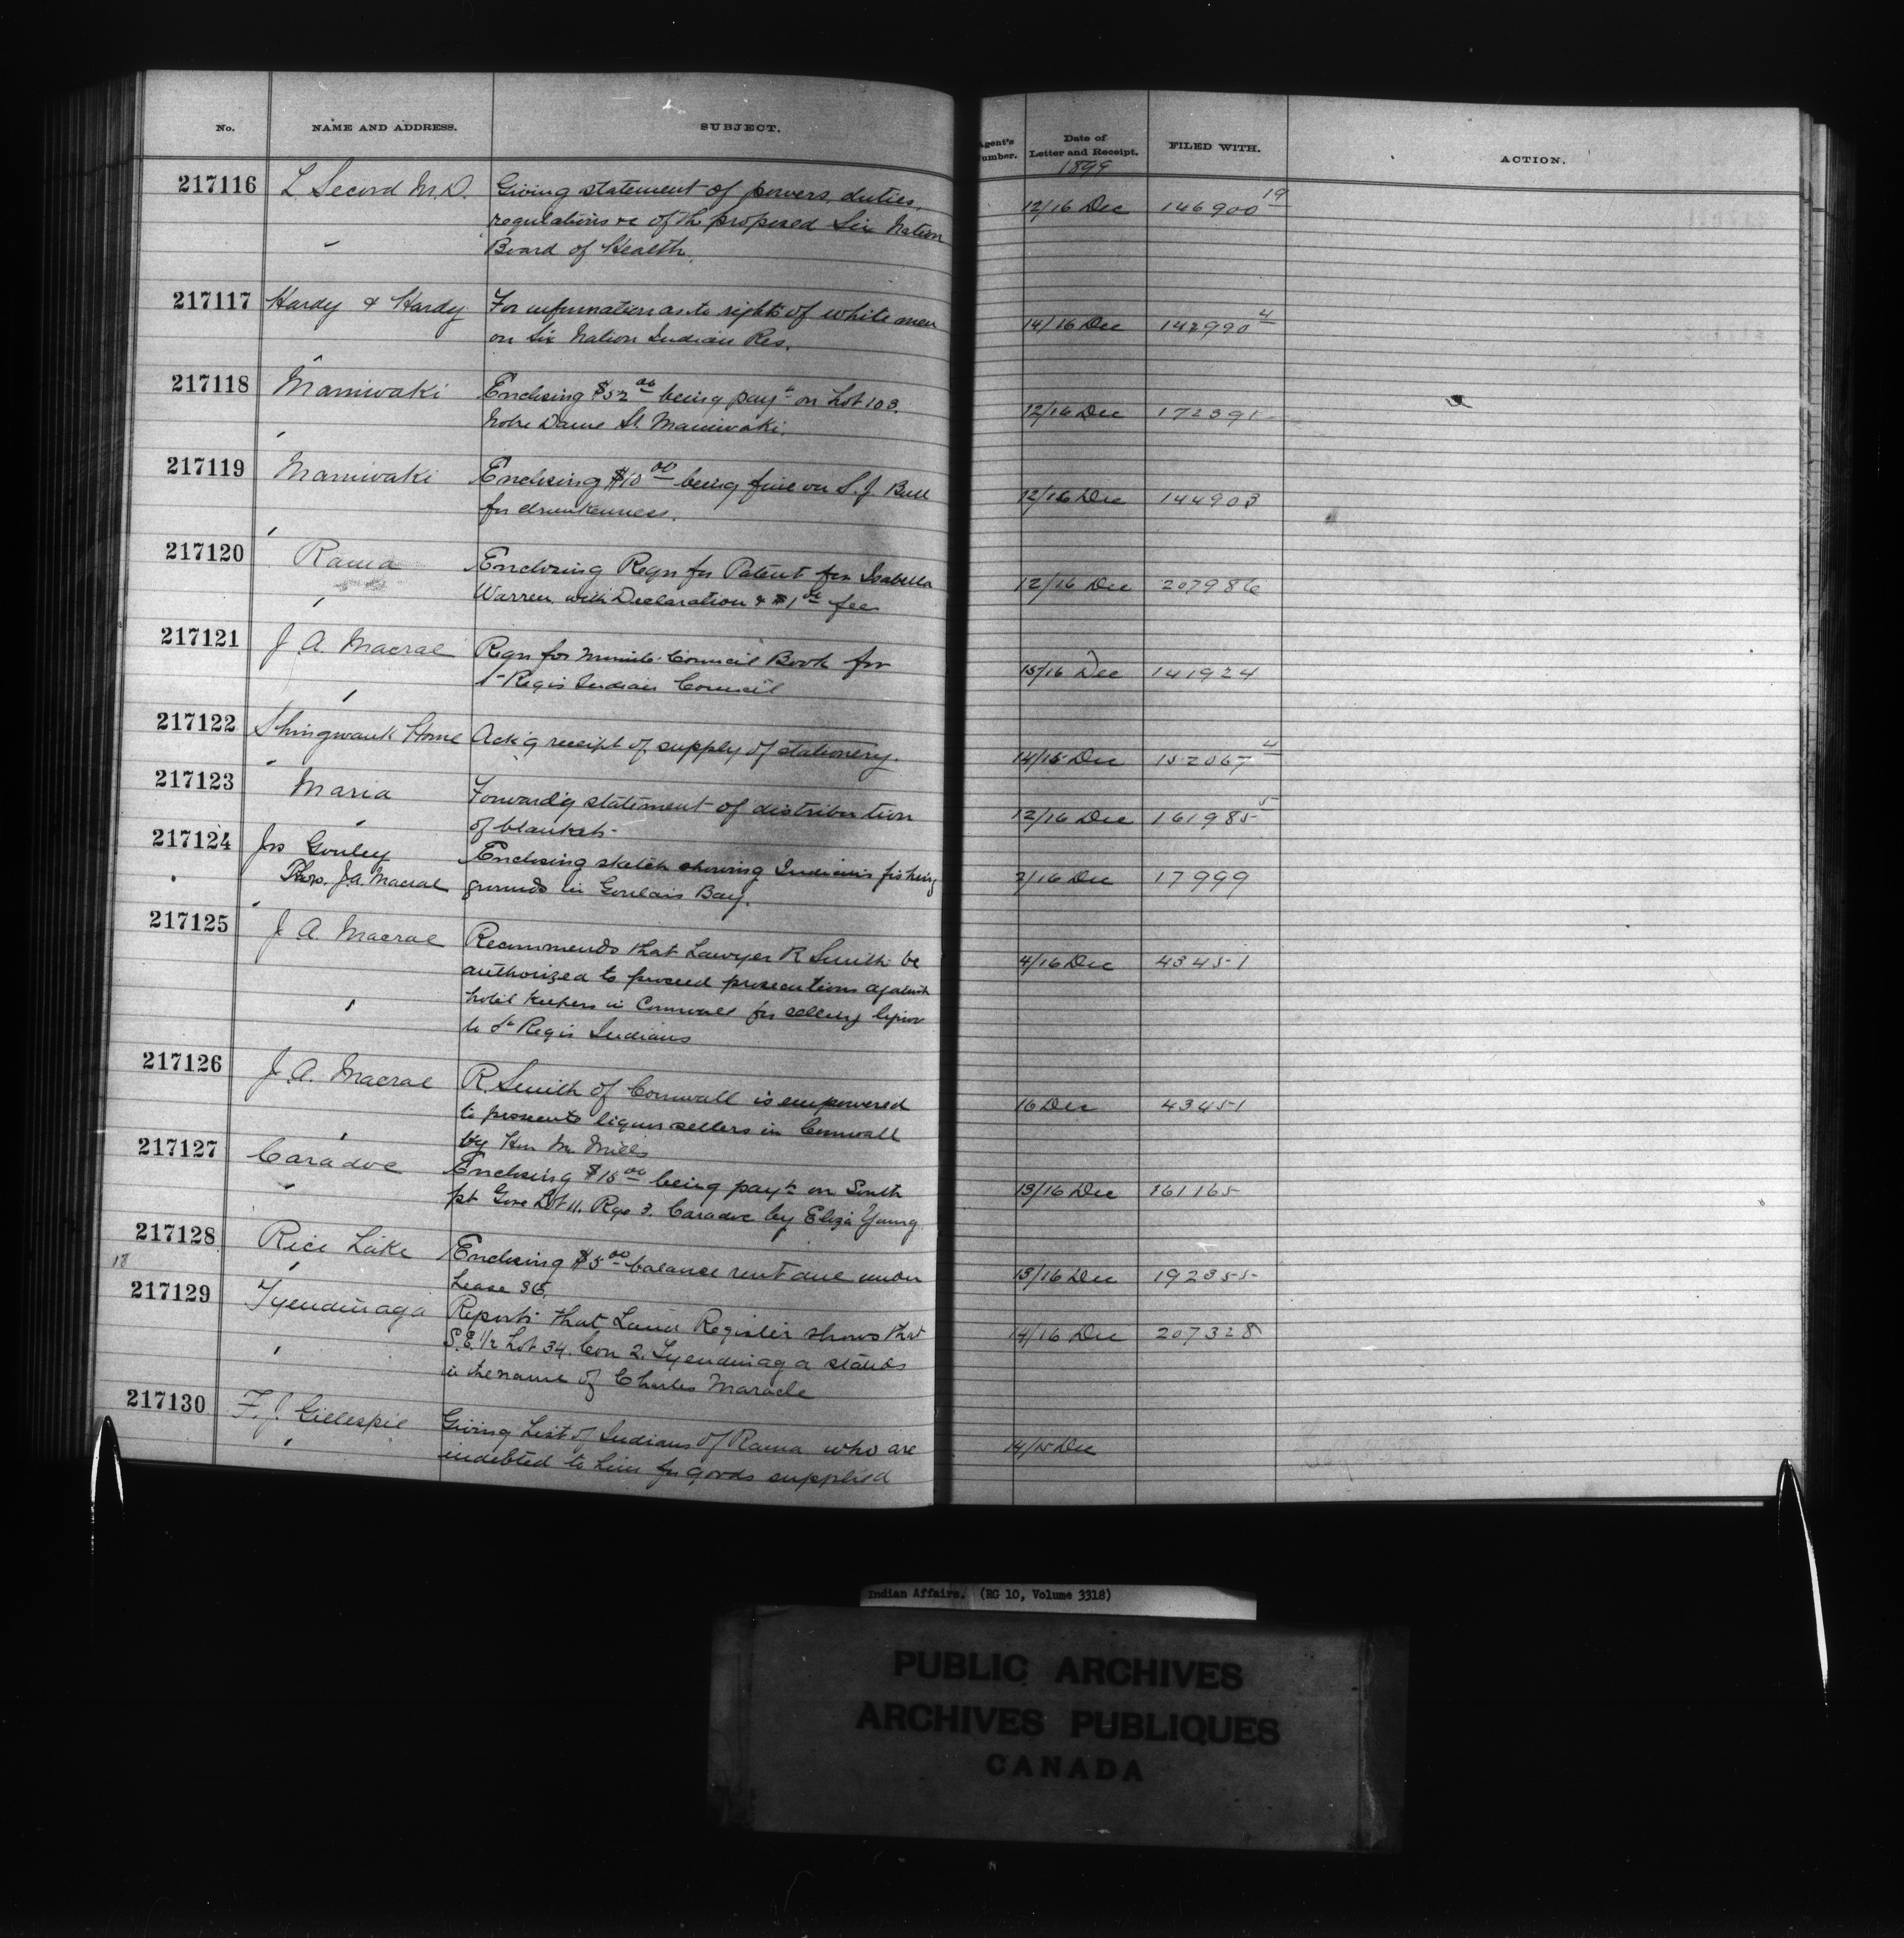 No. NAME AND ADDRESS. SUBJECT. Agent's Number. Date of Letter and Receipt. FILED WITH. ACTION.
1899
217116 L Secord M.D. Giving statement of powers, duties, 12/16 Dec 146900 19
regulations &c of th proposed Six Nation
Board of Health
217117 Hardy & Hardy For information as to rights of white men 14/16 Dec 142990 4
on Six Nation Indian Res.
217118 Maniwaki Enclosing $52 00 being payt on Lot 103. 12/16 Dec 172391
Notre Dame St. Maniwaki.
217119 Maniwaki Enclosing $10 00 being fine on S. J. Bull 12/16 Dec 144903
for drunkenness.
217120 Rama Enclosing Reqn for Patent for Isabella 12/16 Dec 207986
Warren, with Declaration & $1 00 fee
217121 J. A. Macrae Reqn for Minute Council Book for 15/16 Dec 141924
St Regis Indian Council
217122 Shingwauk Home Ack'g receipt of supply of stationery. 14/15 Dec 152067 4
217123 Maria Forward'g statement of distribution 12/16 Dec 161985 5
of blankets.
217124 Jos Gouley Enclosing sketch showing Indians fishing 7/16 Dec 17999
Thro. J.A. Macrae grounds in Goulais Bay.
217125 J. A. Macrae Recommends that Lawyer R Smith be 4/16 Dec 43451
authorized to proceed prosecutions against
hotel keepers in Cornwall for selling liquor
to St Regis Indians
217126 J. A. Macrae R. Smith of Cornwall is empowered 16 Dec 43451
to prosecute liquor sellers in Cornwall
by Hon Mr. Mills
217127 Caradoc Enclosing $15 00 being payt on South 13/16 Dec 161165
pt Gore Lot 11. Rge 3. Caradoc by Eliza Young
217128 Rice Lake Enclosing $5 00 balance rent due under 13/16 Dec 192355
18 Lease 36.
217129 Tyendinaga Reports that Land Register shows that 14/16 Dec 207328
S.E. 1/2 Lot 34. Con 2. Tyendinaga stands
in the name of Charles Maracle
217130 F. J. Gillespie Giving List of Indians of Rama who are 14/15 Dec
indebted to him for goods supplied
Indian Affairs. (RG 10, Volume 3318)
PUBLIC ARCHIVES
ARCHIVES PUBLIQUES
CANADA